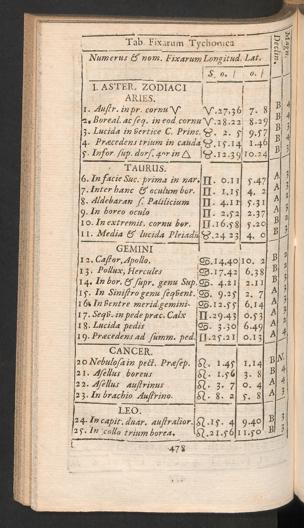 Tab. Fixarum Tychonica
Numerus & nom. Fixarum Longitud. Lat. Declin. Magn.
S. o. / o. /
I. ASTER. ZODIACI
ARIES.
1. Austr. in pr. cornu ♈ ♈.27.36 7. 8 B 4
2. Boreal. ac seq. in eod cornu ♈.28.22 8.29 B 4
3. Lucida in vertice C. Princ. ♉. 2. 5 9.57 B 3
4. Præcedens trium in cauda ♉.15.14 1.46 B 4
5. Infor sup. dors. in △ ♉.12.39 10.24 B
TAURUS.
6. In facie Suc. prima in nar. ♊. 0.11 5.47 A 3
7. Inter hanc & oculum bor. ♊. 1.15 4. 2 A 3
8. Aldebaran s. Palilicium ♊. 4.11 5.31 A
9. In boreo oculo ♊. 2.52 2.37 A
10. In extremit. cornu bor. ♊.16.58 5.20 B
11. Media & lucida Pleiadū ♉.24 23 4. 0 B
GEMINI
12. Castor, Apollo. ♋.14.40 10. 2 B 2
13. Pollux, Hercules ♋.17.42 6.38 B 2
14. In bor. & supr. genu Sup. ♋. 4.21 2.11 B
15. In Sinistro genu sequent. ♋. 9.25 2. 7 A 3
16. In ventre merid. gemini. ♋.12.55 6.14 A
17. Sequ. in pede præc. Calx ♊.29.43 0.53 A
18. Lucida pedis ♋. 3.30 6.49 A
19. Præcedens ad summ. ped. ♊.25.21 0.13 A
CANCER.
20 Nebulosa in pect. Præsep. ♌. 1.45 1.14 B N.
21. Asellus boreus ♌. 1.56 3. 8 B 4
22. Asellus austrinus ♌. 3. 7 0. 4 A 4
23. In brachio Austrino. ♌. 8. 2 5. 8 A 3
LEO.
24. In capit. duar. australior. ♌.15. 4 9.40 B 3
25. In collo trium borea. ♌.21.56 11.50 B 3
478